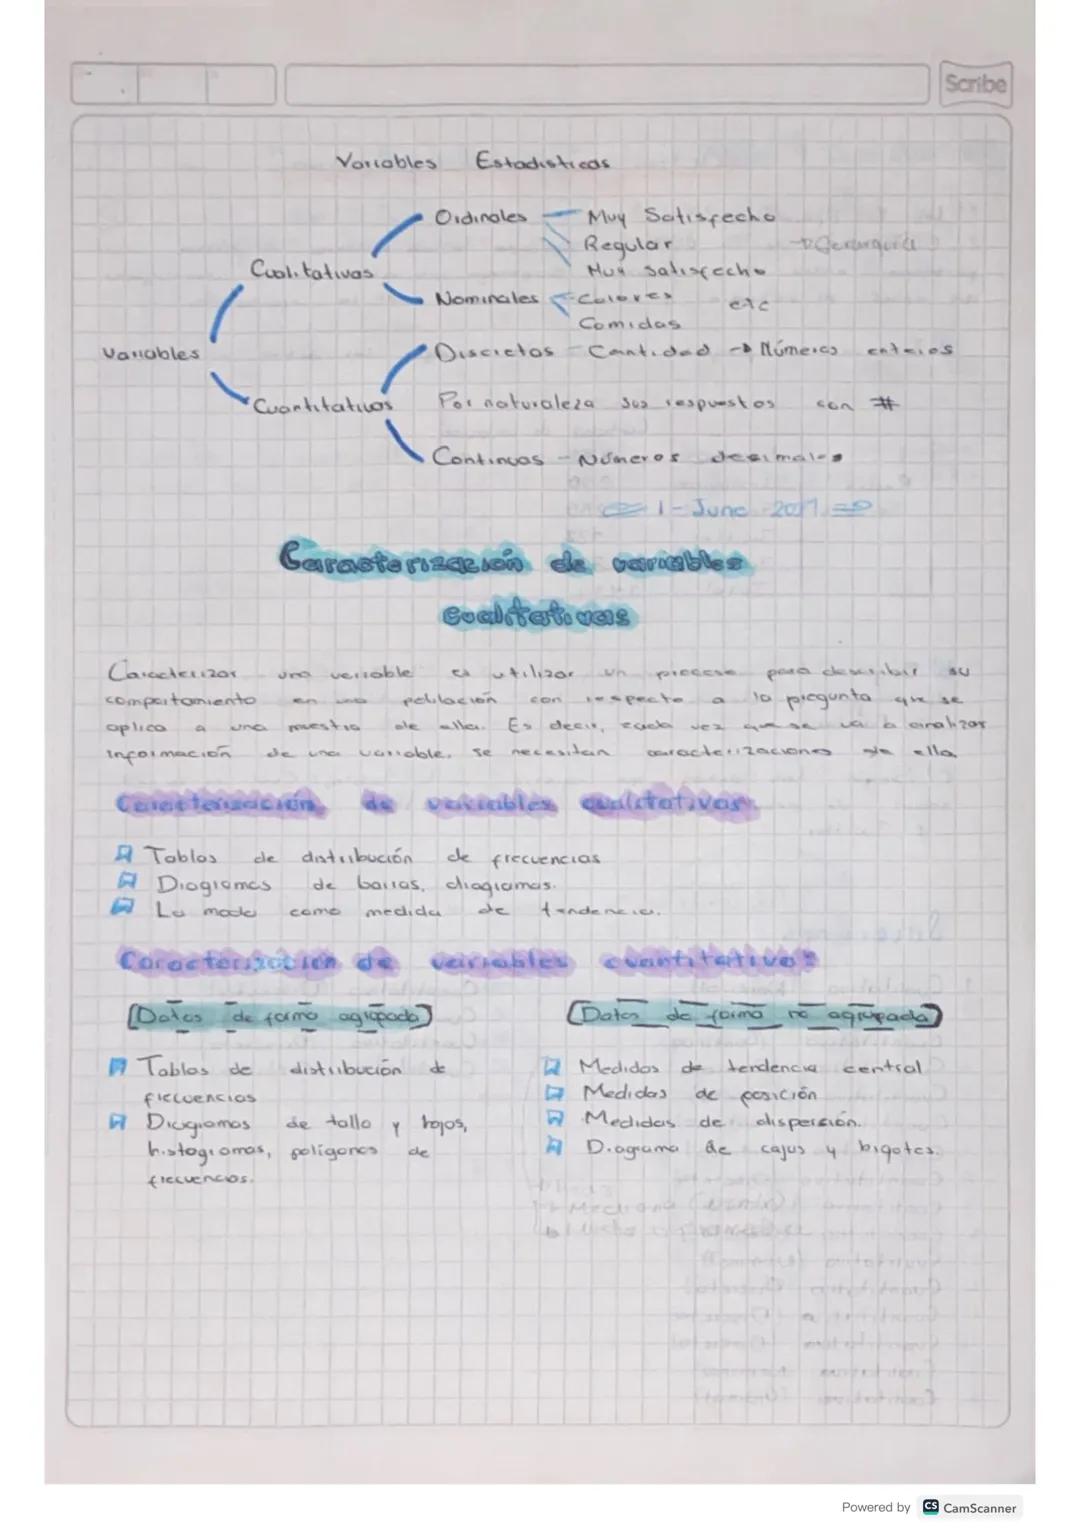 Scribe
Variables Estadisticas
Ordinales Muy Satisfecho
Regular → Gerarquía
Muy satisfecho
Cualitativas
Nominales Colores etc
Comidas
Variables
Discretas - Cantidad → Números enteros
Cuantitativas Por naturaleza sus respuestas son #
Continuas - Números desimales
1 - June
Caracterización de variables
Cualitativas
Caracterizar una variable es utilizar un proceso para describir su
comportamiento en una población con respecto a la pregunta que se
aplica a una muestra de ella. Es decir, cada vez que se va a analizar
información de una variable, se necesitan caracterizaciones de ella
Caracterización de variables cualitativas:
Tablas de distribución de frecuencias
Diagramas de barras, diagramas.
La moda como medida de tendencia.
Caracterización de variables cuantitativas
[Datos de forma agrupada] [Datos de forma no agrupada]
Tablas de distribución de Medidas de tendencia central
frecuencias Medidas de posición
Diagramas de tallo y hojas, Medidas de dispersión.
histogramas, polígonos de Diagrama de cajas y bigotes.
frecuencias.
Powered by CS CamScanner